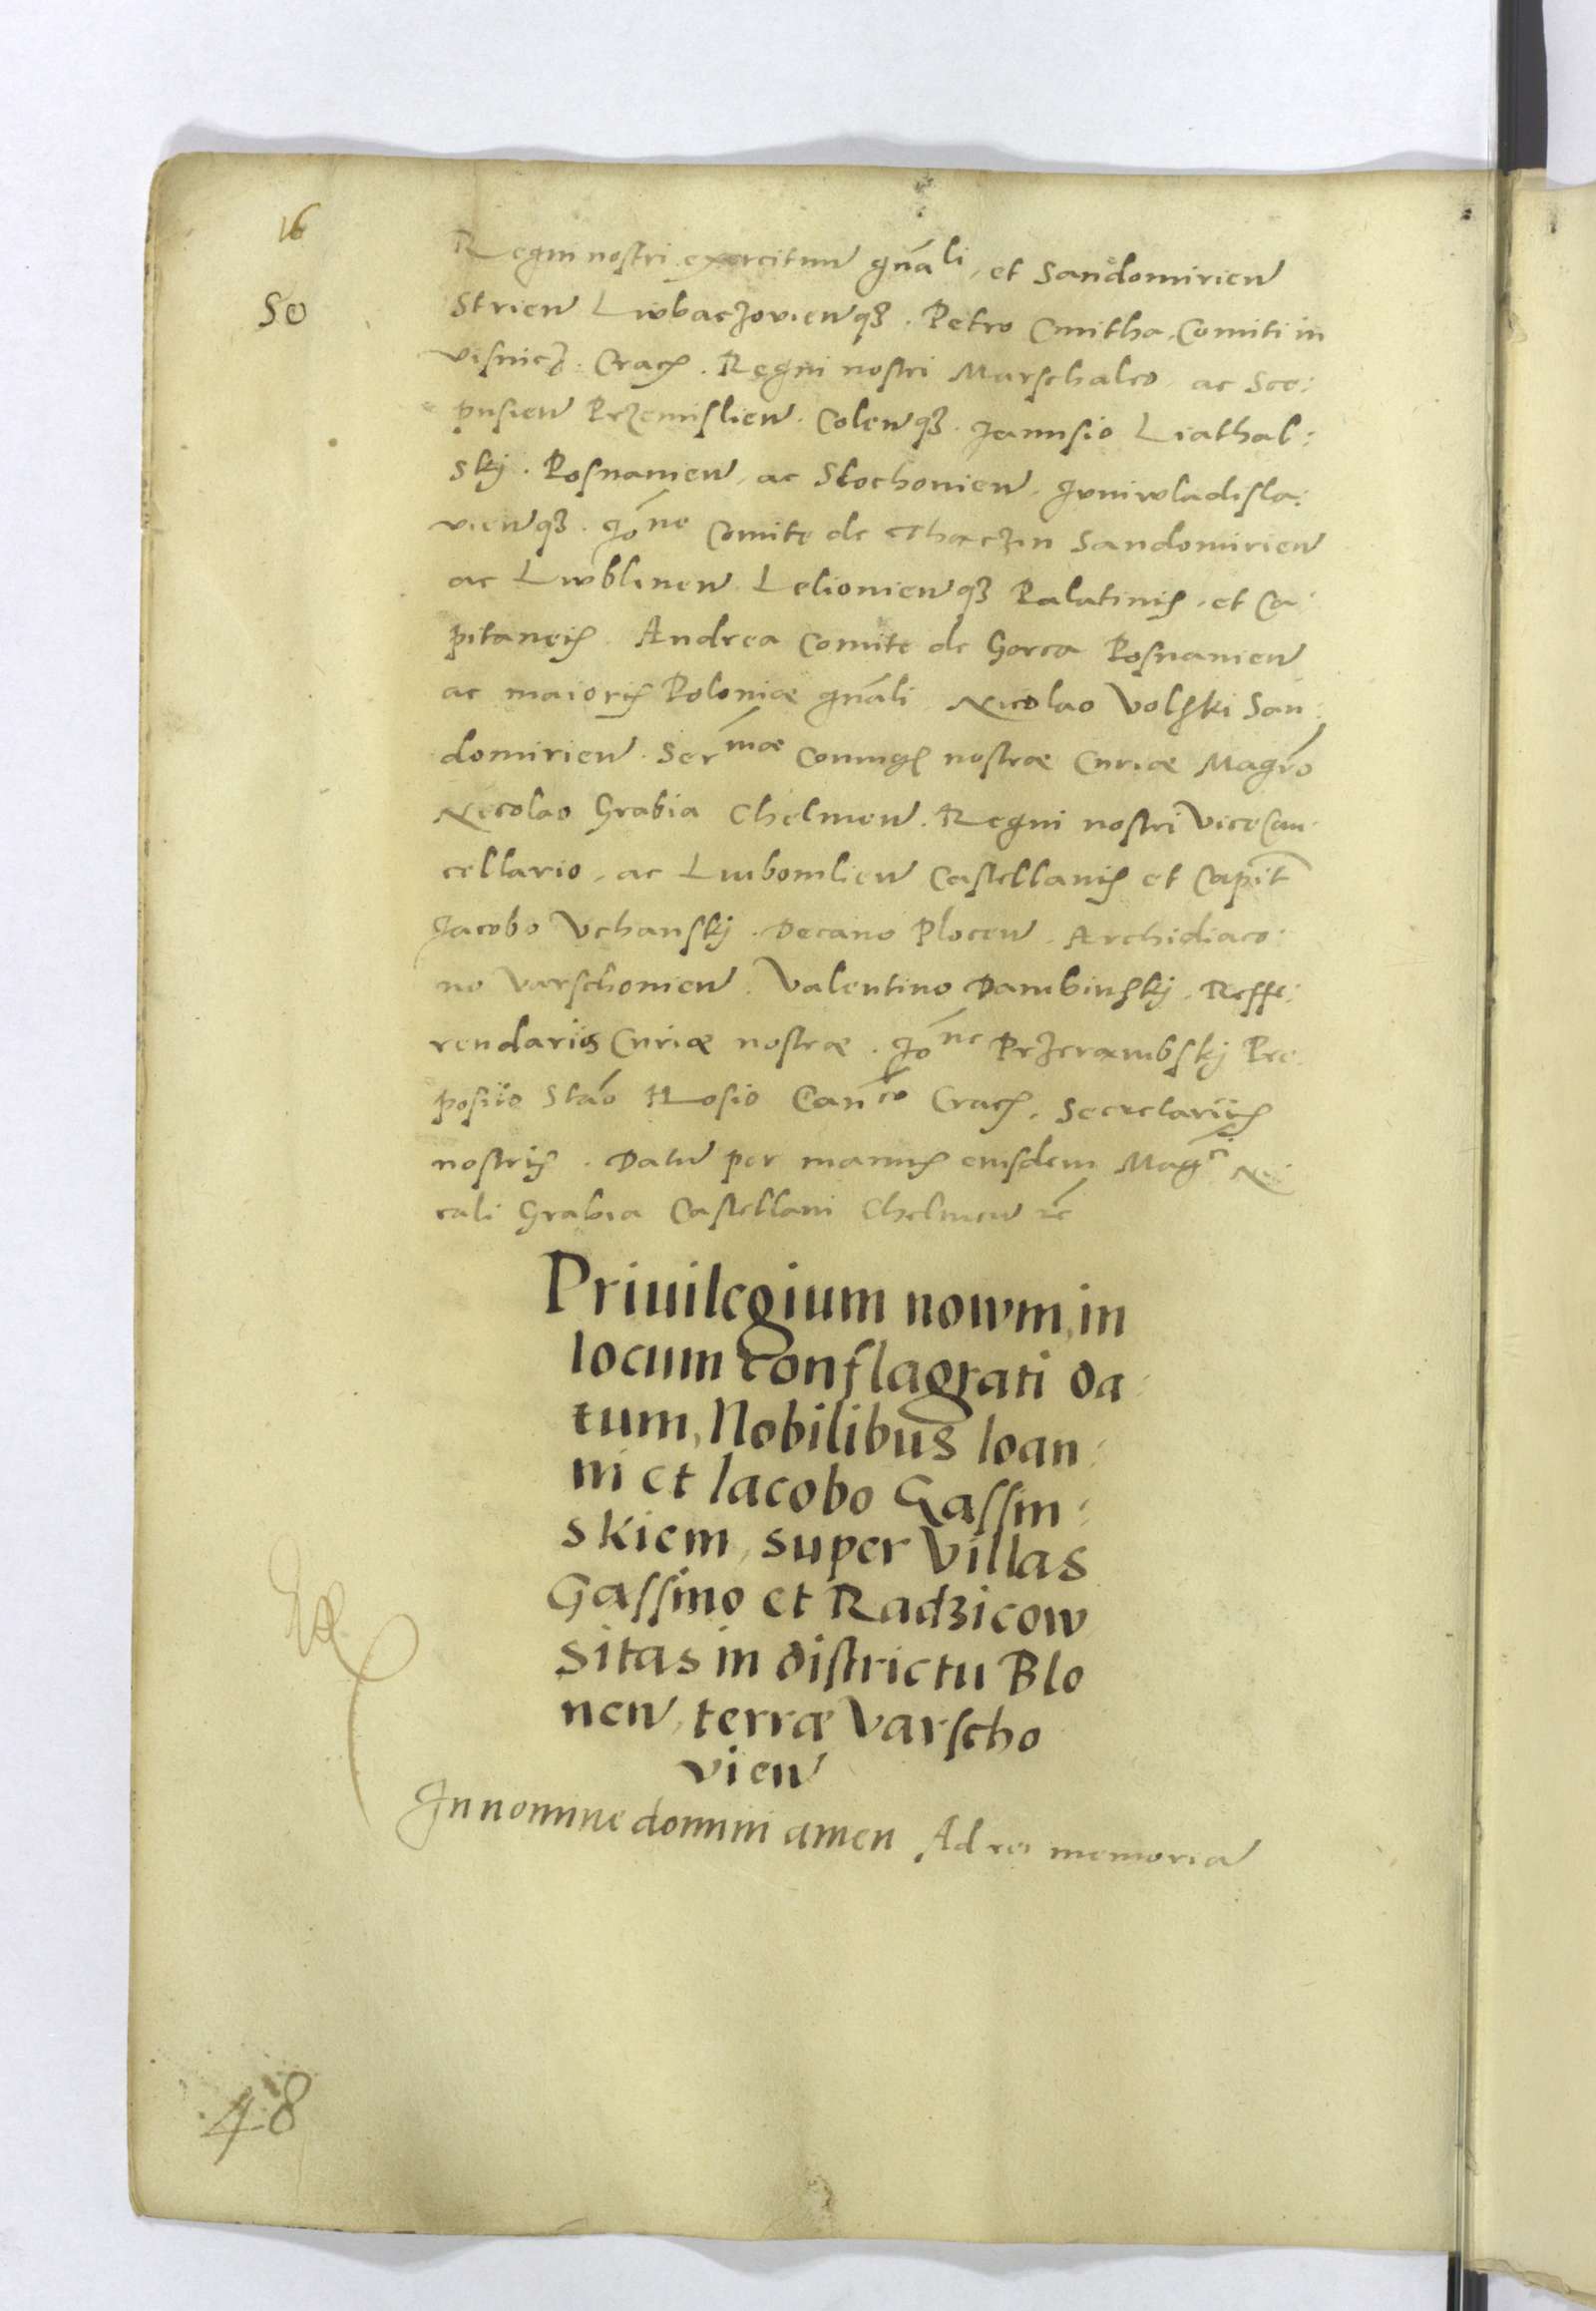 16
50
Regni nostri exercituu gnãli, et Sandomirien
Strien Lwbaczovienqꝫ. Petro Cmitha, Comiti in
Visnicz. Crac. Regni nostri Marschalco, ac Sce:
pusien Przemislien. Colenqꝫ. Janusio Liathal:
skj. Posnanien, ac Slochovien, Juniwladisla:
vienqꝫ. Jo͞ne Comite de Thaczin Sandomirien
ac Lwblinen Lelionienqꝫ Palatinis, et Ca:
pitaneis. Andrea Comite de Gorca Posnanien
ac maioris Poloniæ gnãli Nicolao Volski San:
domirien. Ser͞mæ Coniugis nostræ Curiæ Magr̃o
Nicolao Grabia Chelmen. Regni nostri Vicecan:
cellario, ac Luibomlien Castellanis et Capit
Jacobo Vchanskj. Decano Plocen. Archidiaco:
no Varschovien. Valentino Dambinskj. Reffe:
rendariis Curiæ nostræ. Jo͞ne Przerambskj Pre
posito Stão Hosio Can͞co Crac. Secretariis
nostris. Datu per manus eiusdem Mag͞ci Ni:
colai Grabia Castellani Chelmen ꝛc̃
Priuilegium nowm, in
locum conflagrati da:
tum, Nobilibus Ioan:
ni et Iacobo Gassin:
skiem, super Villas
Gassino et Radzicow
sitas in districtu Blo
nen, terræ Varscho
vien
In nomine domini amen Ad rei memoria
48